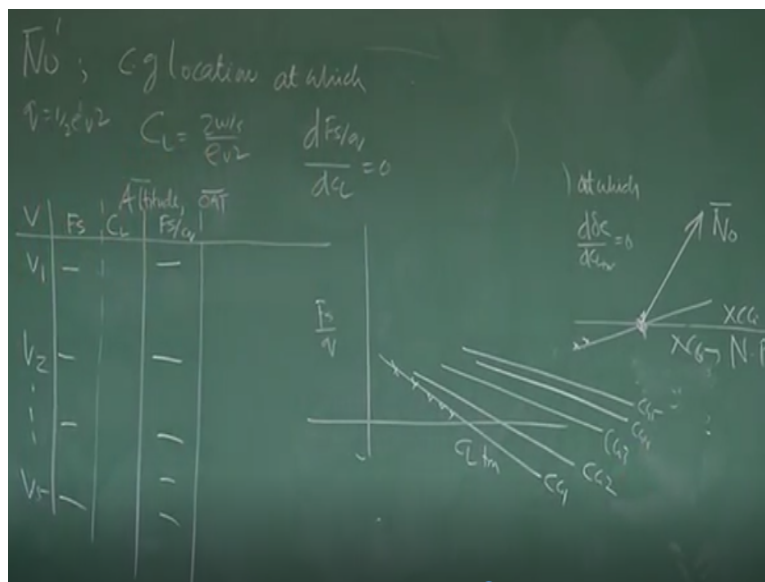 N̄o' ; c.g location at which
q = 1/2 ρ v2
CL = 2w/s / ρ v2
dFs/q / dCL = 0
Altitude, OAT
V Fs CL Fs/q
V1
V2
V5
Fs/q
CL trim
CG1
CG2
CG3
CG4
CG5
) at which
dδe / dCLtrim = 0
N̄o
XCG
XCG → N.P